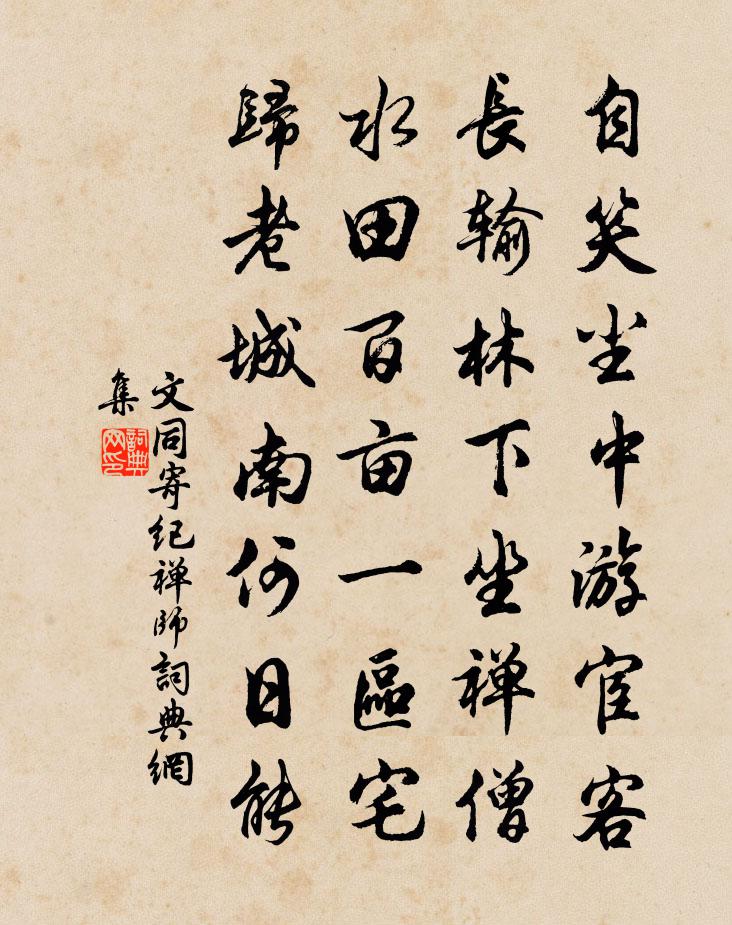 自笑尘中游宦客
長输林下坐禅僧
水田百亩一區宅
歸老城南何日能
文同寄纪禅师詞典網
集
詞典
网印